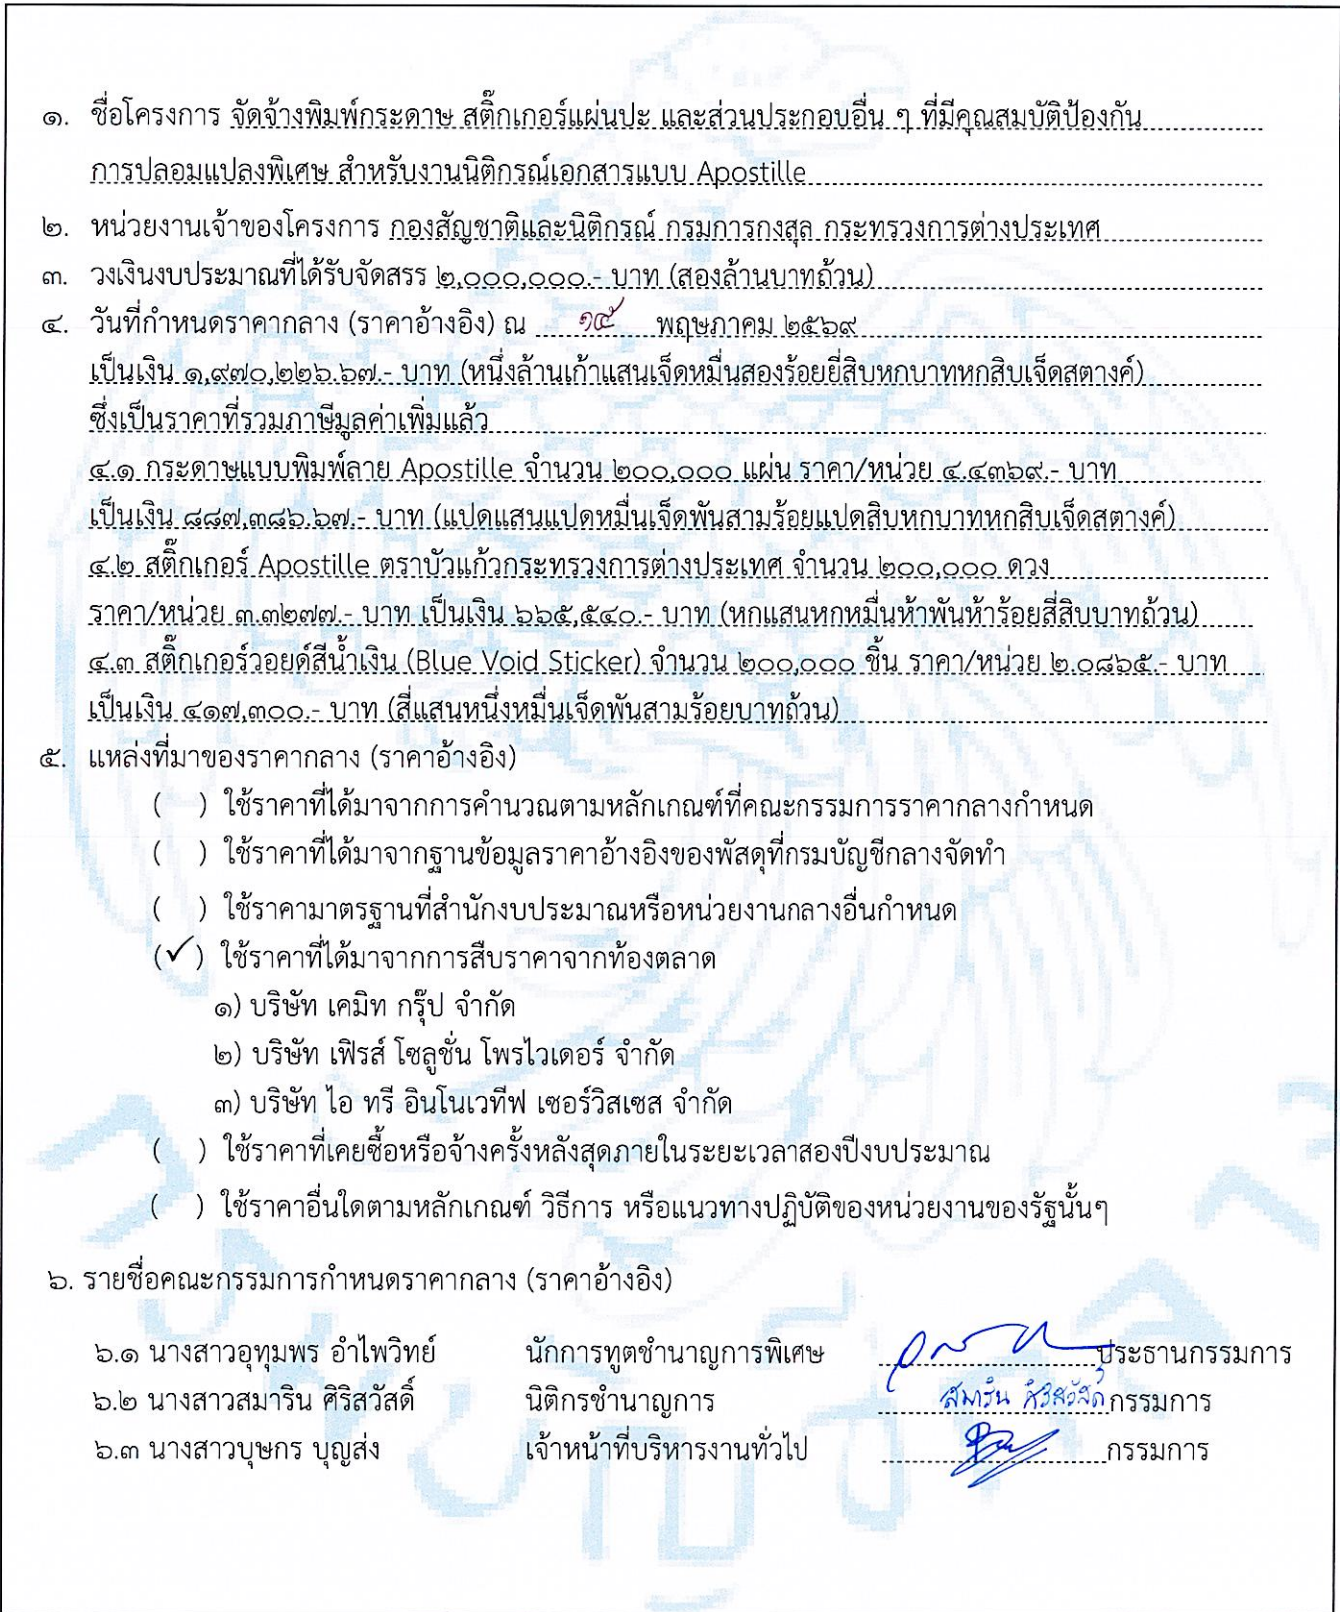 ๑. ชื่อโครงการ จัดจ้างพิมพ์กระดาษ สติ๊กเกอร์แผ่นปะ และส่วนประกอบอื่น ๆ ที่มีคุณสมบัติป้องกัน
การปลอมแปลงพิเศษ สำหรับงานนิติกรณ์เอกสารแบบ Apostille
๒. หน่วยงานเจ้าของโครงการ กองสัญชาติและนิติกรณ์ กรมการกงสุล กระทรวงการต่างประเทศ
๓. วงเงินงบประมาณที่ได้รับจัดสรร ๒,๐๐๐,๐๐๐.- บาท (สองล้านบาทถ้วน)
๔. วันที่กำหนดราคากลาง (ราคาอ้างอิง) ณ พฤษภาคม ๒๕๖๙
เป็นเงิน ๑,๙๗๐,๒๒๖.๖๗.- บาท (หนึ่งล้านเก้าแสนเจ็ดหมื่นสองร้อยยี่สิบหกบาทหกสิบเจ็ดสตางค์)
ซึ่งเป็นราคาที่รวมภาษีมูลค่าเพิ่มแล้ว
๔.๑ กระดาษแบบพิมพ์ลาย Apostille จำนวน ๒๐๐,๐๐๐ แผ่น ราคา/หน่วย ๔.๔๓๖๙.- บาท
เป็นเงิน ๘๘๗,๓๘๖.๖๗.- บาท (แปดแสนแปดหมื่นเจ็ดพันสามร้อยแปดสิบหกบาทหกสิบเจ็ดสตางค์)
๔.๒ สติ๊กเกอร์ Apostille ตราบัวแก้วกระทรวงการต่างประเทศ จำนวน ๒๐๐,๐๐๐ ดวง
ราคา/หน่วย ๓.๓๒๗๗.- บาท เป็นเงิน ๖๖๕,๕๔๐.- บาท (หกแสนหกหมื่นห้าพันห้าร้อยสี่สิบบาทถ้วน)
๔.๓ สติ๊กเกอร์วอยด์สีน้ำเงิน (Blue Void Sticker) จำนวน ๒๐๐,๐๐๐ ชิ้น ราคา/หน่วย ๒.๐๘๖๕.- บาท
เป็นเงิน ๔๑๗,๓๐๐.- บาท (สี่แสนหนึ่งหมื่นเจ็ดพันสามร้อยบาทถ้วน)
๕. แหล่งที่มาของราคากลาง (ราคาอ้างอิง)
( ) ใช้ราคาที่ได้มาจากการคำนวณตามหลักเกณฑ์ที่คณะกรรมการราคากลางกำหนด
( ) ใช้ราคาที่ได้มาจากฐานข้อมูลราคาอ้างอิงของพัสดุที่กรมบัญชีกลางจัดทำ
( ) ใช้ราคามาตรฐานที่สำนักงบประมาณหรือหน่วยงานกลางอื่นกำหนด
(✓) ใช้ราคาที่ได้มาจากการสืบราคาจากท้องตลาด
๑) บริษัท เคมิท กรุ๊ป จำกัด
๒) บริษัท เฟิรส์ โซลูชั่น โพรไวเดอร์ จำกัด
๓) บริษัท ไอ ทรี อินโนเวทีฟ เซอร์วิสเซส จำกัด
( ) ใช้ราคาที่เคยซื้อหรือจ้างครั้งหลังสุดภายในระยะเวลาสองปีงบประมาณ
( ) ใช้ราคาอื่นใดตามหลักเกณฑ์ วิธีการ หรือแนวทางปฏิบัติของหน่วยงานของรัฐนั้นๆ
๖. รายชื่อคณะกรรมการกำหนดราคากลาง (ราคาอ้างอิง)
๖.๑ นางสาวอุทุมพร อำไพวิทย์ นักการทูตชำนาญการพิเศษ ประธานกรรมการ
๖.๒ นางสาวสมาริน ศิริสวัสดิ์ นิติกรชำนาญการ สมาริน ศิริสวัสดิ์ กรรมการ
๖.๓ นางสาวบุษกร บุญส่ง เจ้าหน้าที่บริหารงานทั่วไป กรรมการ